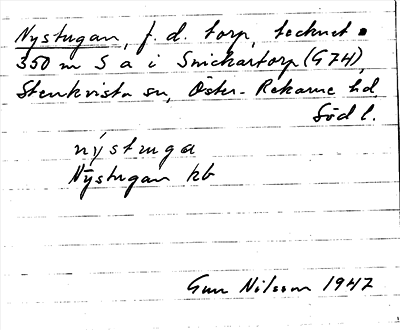 Nystugan, f. d. torp, tecknet •
350 m S a i Snickartorp (G74),
Stenkvista sn, Öster-Rekarne hd.
Södl.
nýstuga
Nystugan kb
Gun Nilsson 1947